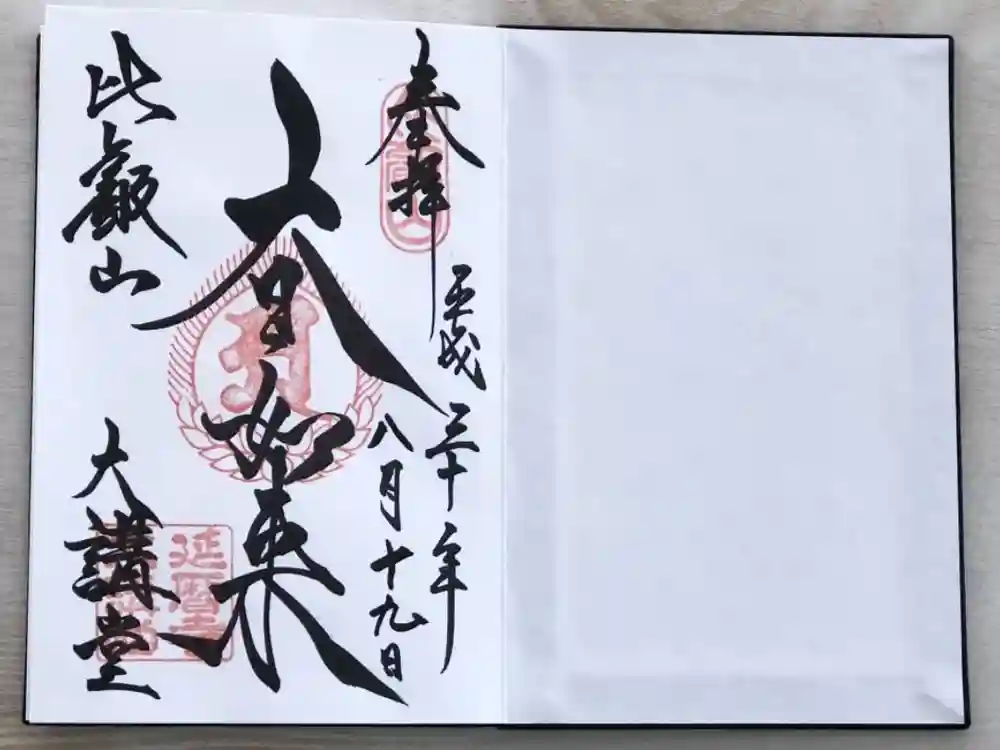 奉拝
平成三十年
八月十九日
大日如来
比叡山
大講堂
延暦寺